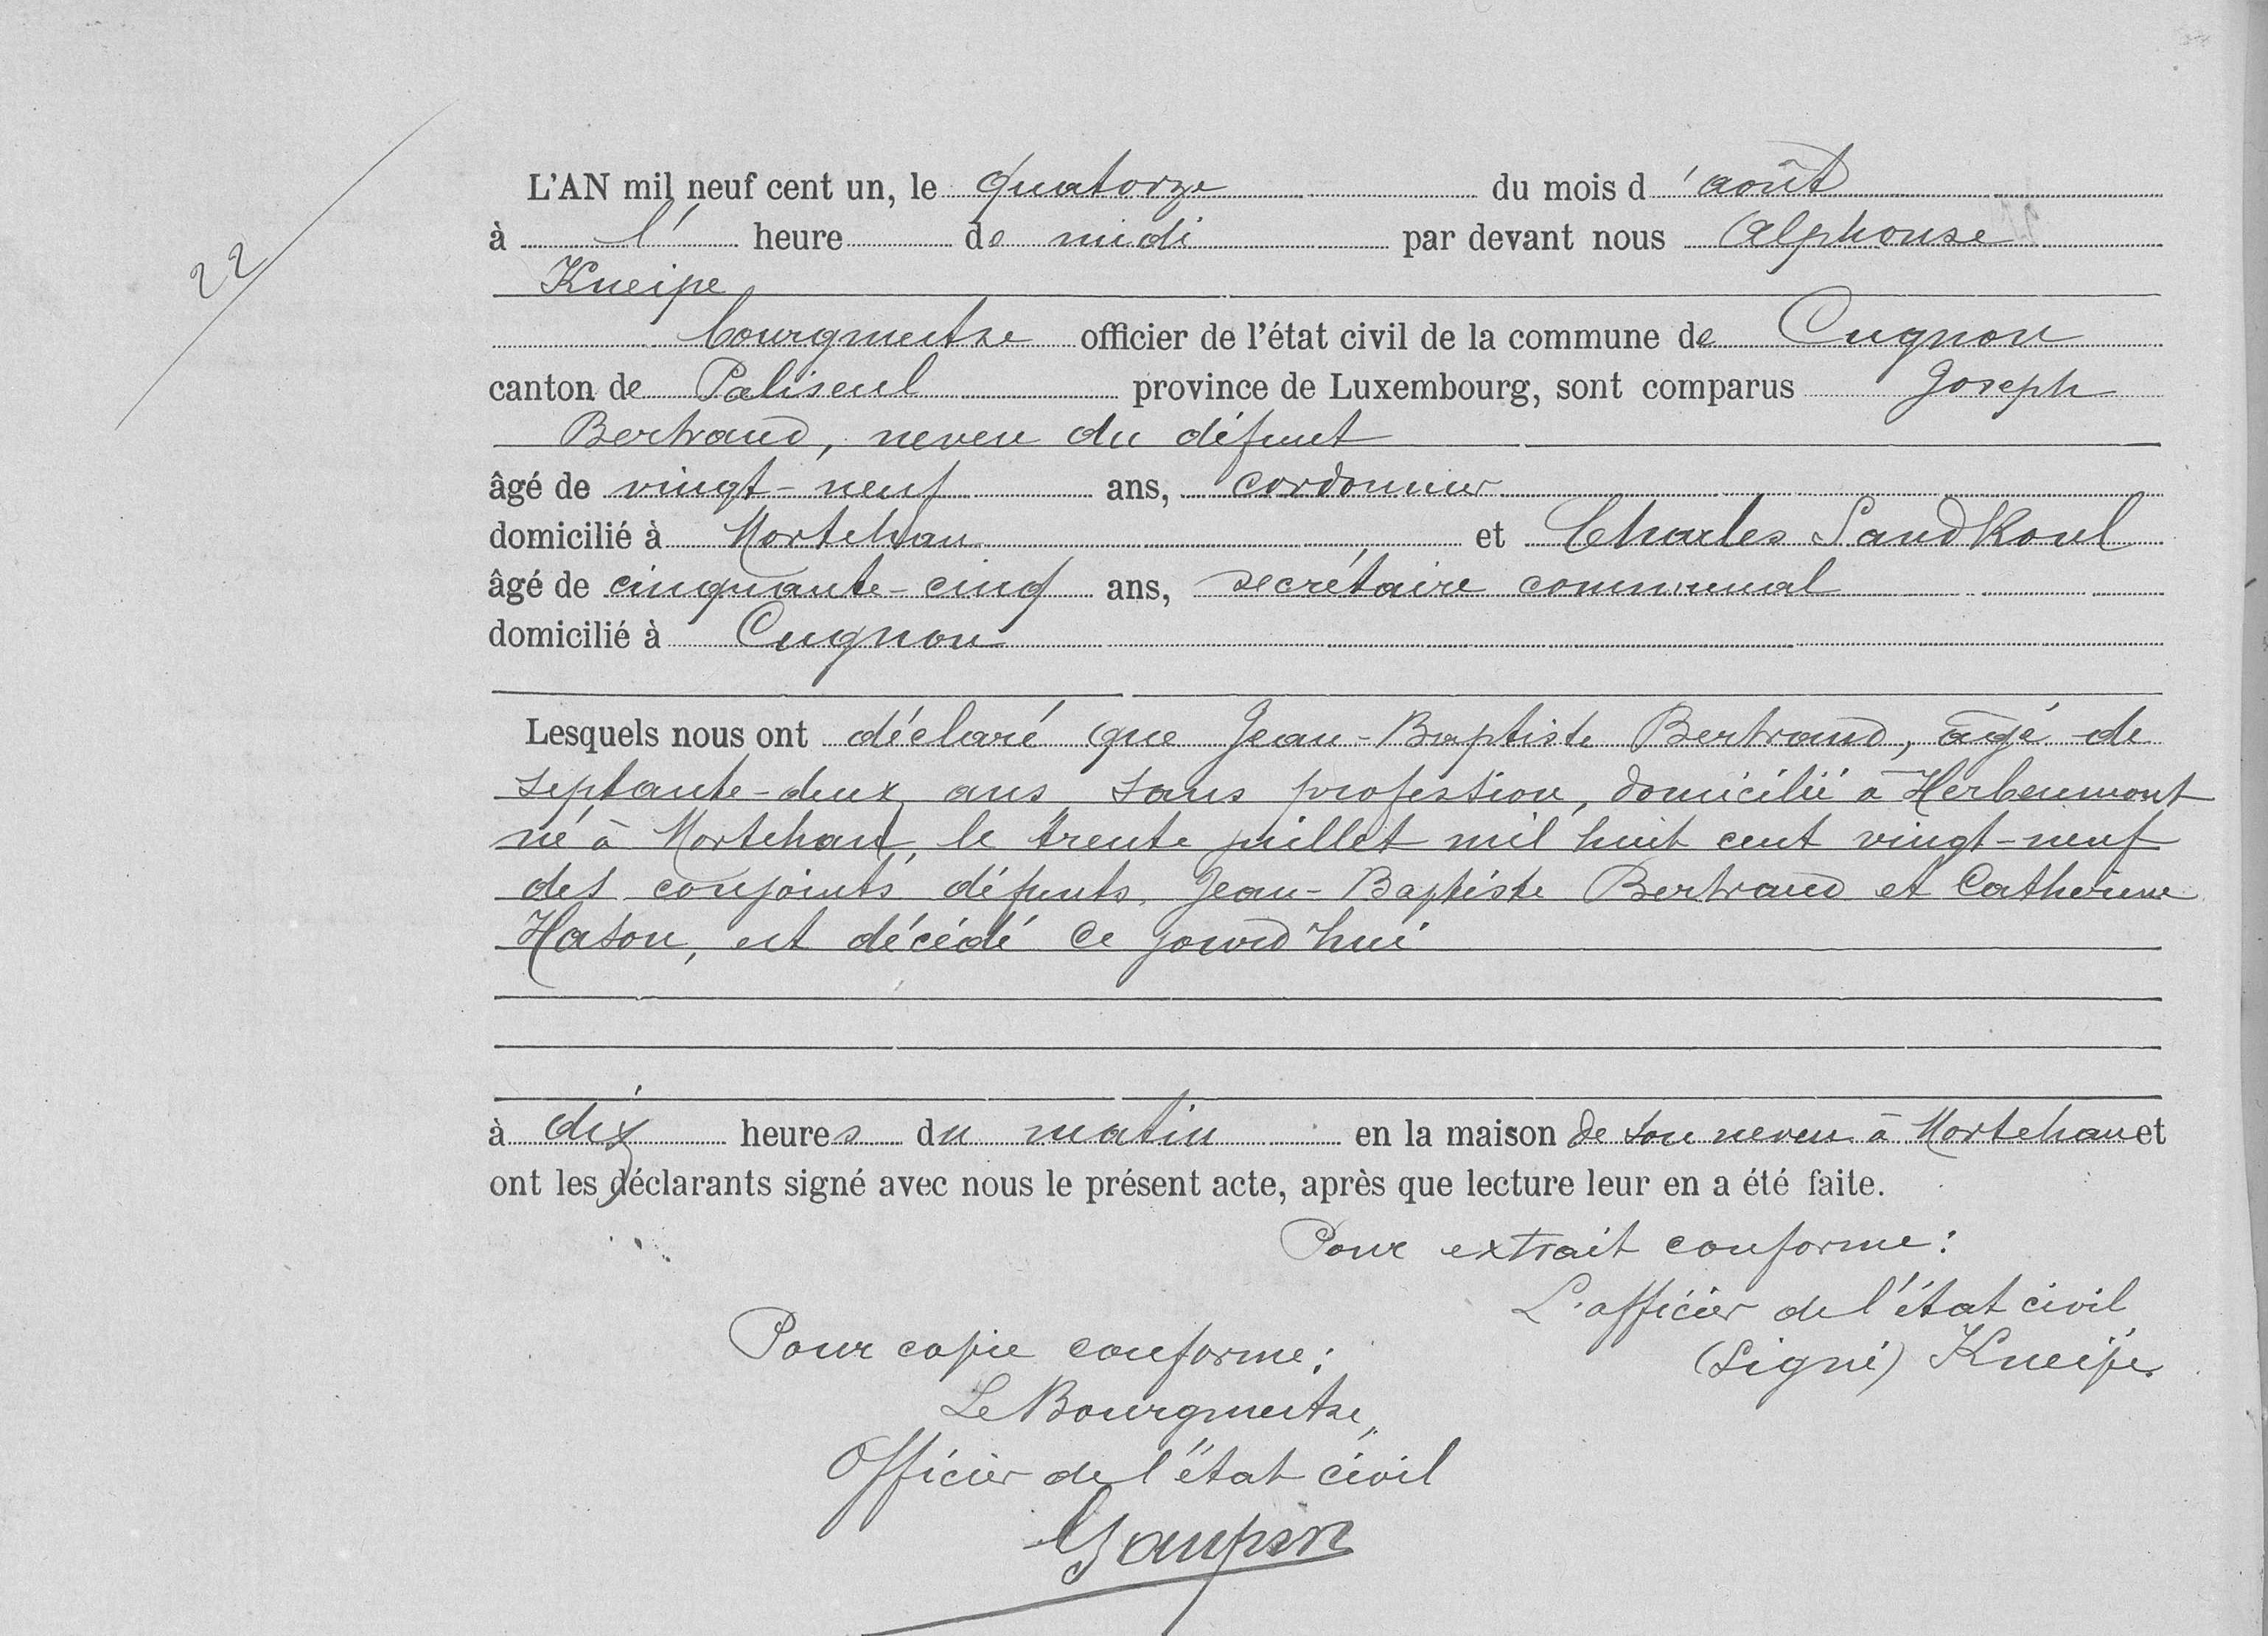 22
L'AN mil neuf cent un, le quatorze du mois d'août
à l' heure de midi par devant nous Alphonse
Kneipe
bourgmestre officier de l'état civil de la commune de Cugnon
canton de Paliseul province de Luxembourg, sont comparus Joseph
Bertrand, neveu du défunt
âgé de vingt-neuf ans, cordonnier
domicilié à Mortehan et Charles Sandkoul
âgé de cinquante-cinq ans, secrétaire communal
domicilié à Cugnon
Lesquels nous ont déclaré que Jean-Baptiste Bertrand, âgé de
septante-deux ans, sans profession, domicilié à Herbeumont
né à Mortehan, le trente juillet mil huit cent vingt-neuf
des conjoints défunts, Jean-Baptiste Bertrand et Catherine
Hason, est décédé ce jourd'hui
à dix heures du matin en la maison de son neveu à Mortehan et
ont les déclarants signé avec nous le présent acte, après que lecture leur en a été faite.
Pour extrait conforme:
L'officier de l'état civil
(Signé) Kneipe
Pour copie conforme:
Le Bourgmestre,
Officier de l'état civil